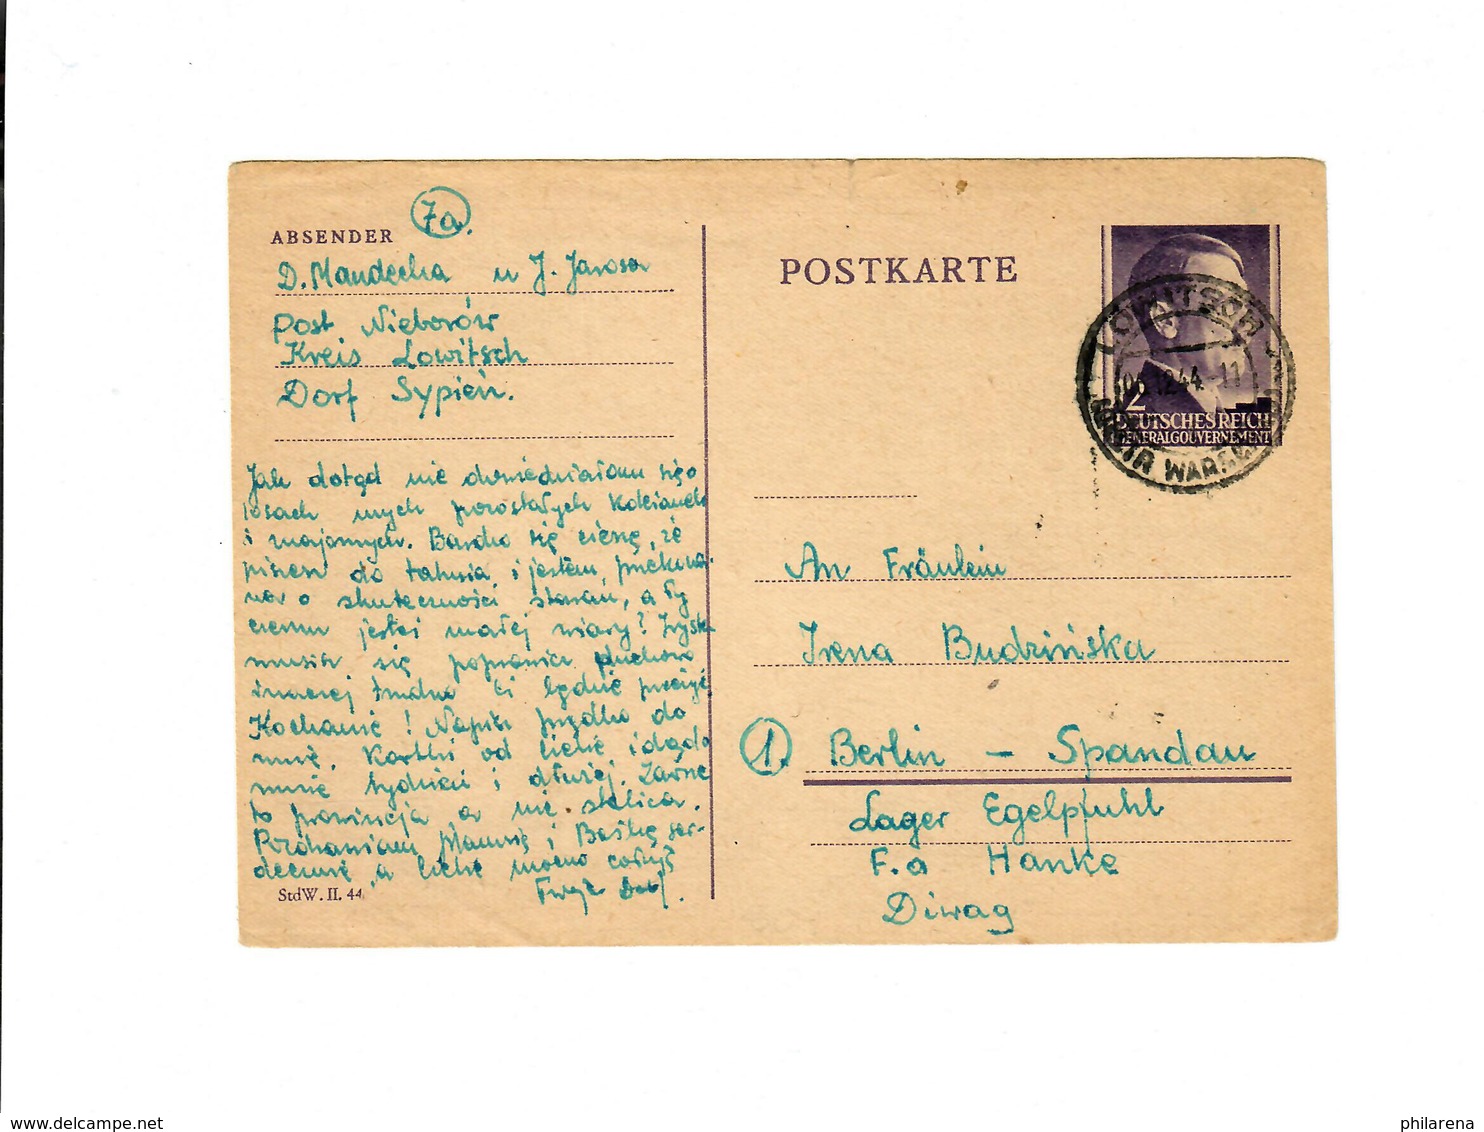 7a.
ABSENDER
D. Mandecka u J. Jarosa
Post Nieborów
Kreis Lowitsch
Dorf Sypień.
Jak dotąd nie dowiedziałam się o
losach mych pozostałych
i znajomych. Bardzo się cieszę, że
piszesz do tatusia, i jestem przekona-
na o skuteczności starań, a Ty
czemu jesteś małej wiary?
musisz się poprawić duchowo
inaczej trudno Ci będzie przeżyć
Kochanie! Napisz prędko do
mnie. Kartki od Ciebie idą do
mnie tydzień i dłużej.
to prowincja a nie stolica.
Pozdrawiam Mamusię i ser-
decznie, a Ciebie mocno całuję
StdW. II. 44
POSTKARTE
LOWITSCH
12.44.-11
2
DEUTSCHES REICH
GENERALGOUVERNEMENT
An Fräulein
Irena Budzińska
1. Berlin – Spandau
Lager Egelpfuhl
F.a Hanke
Diwag
www.delcampe.net
philarena